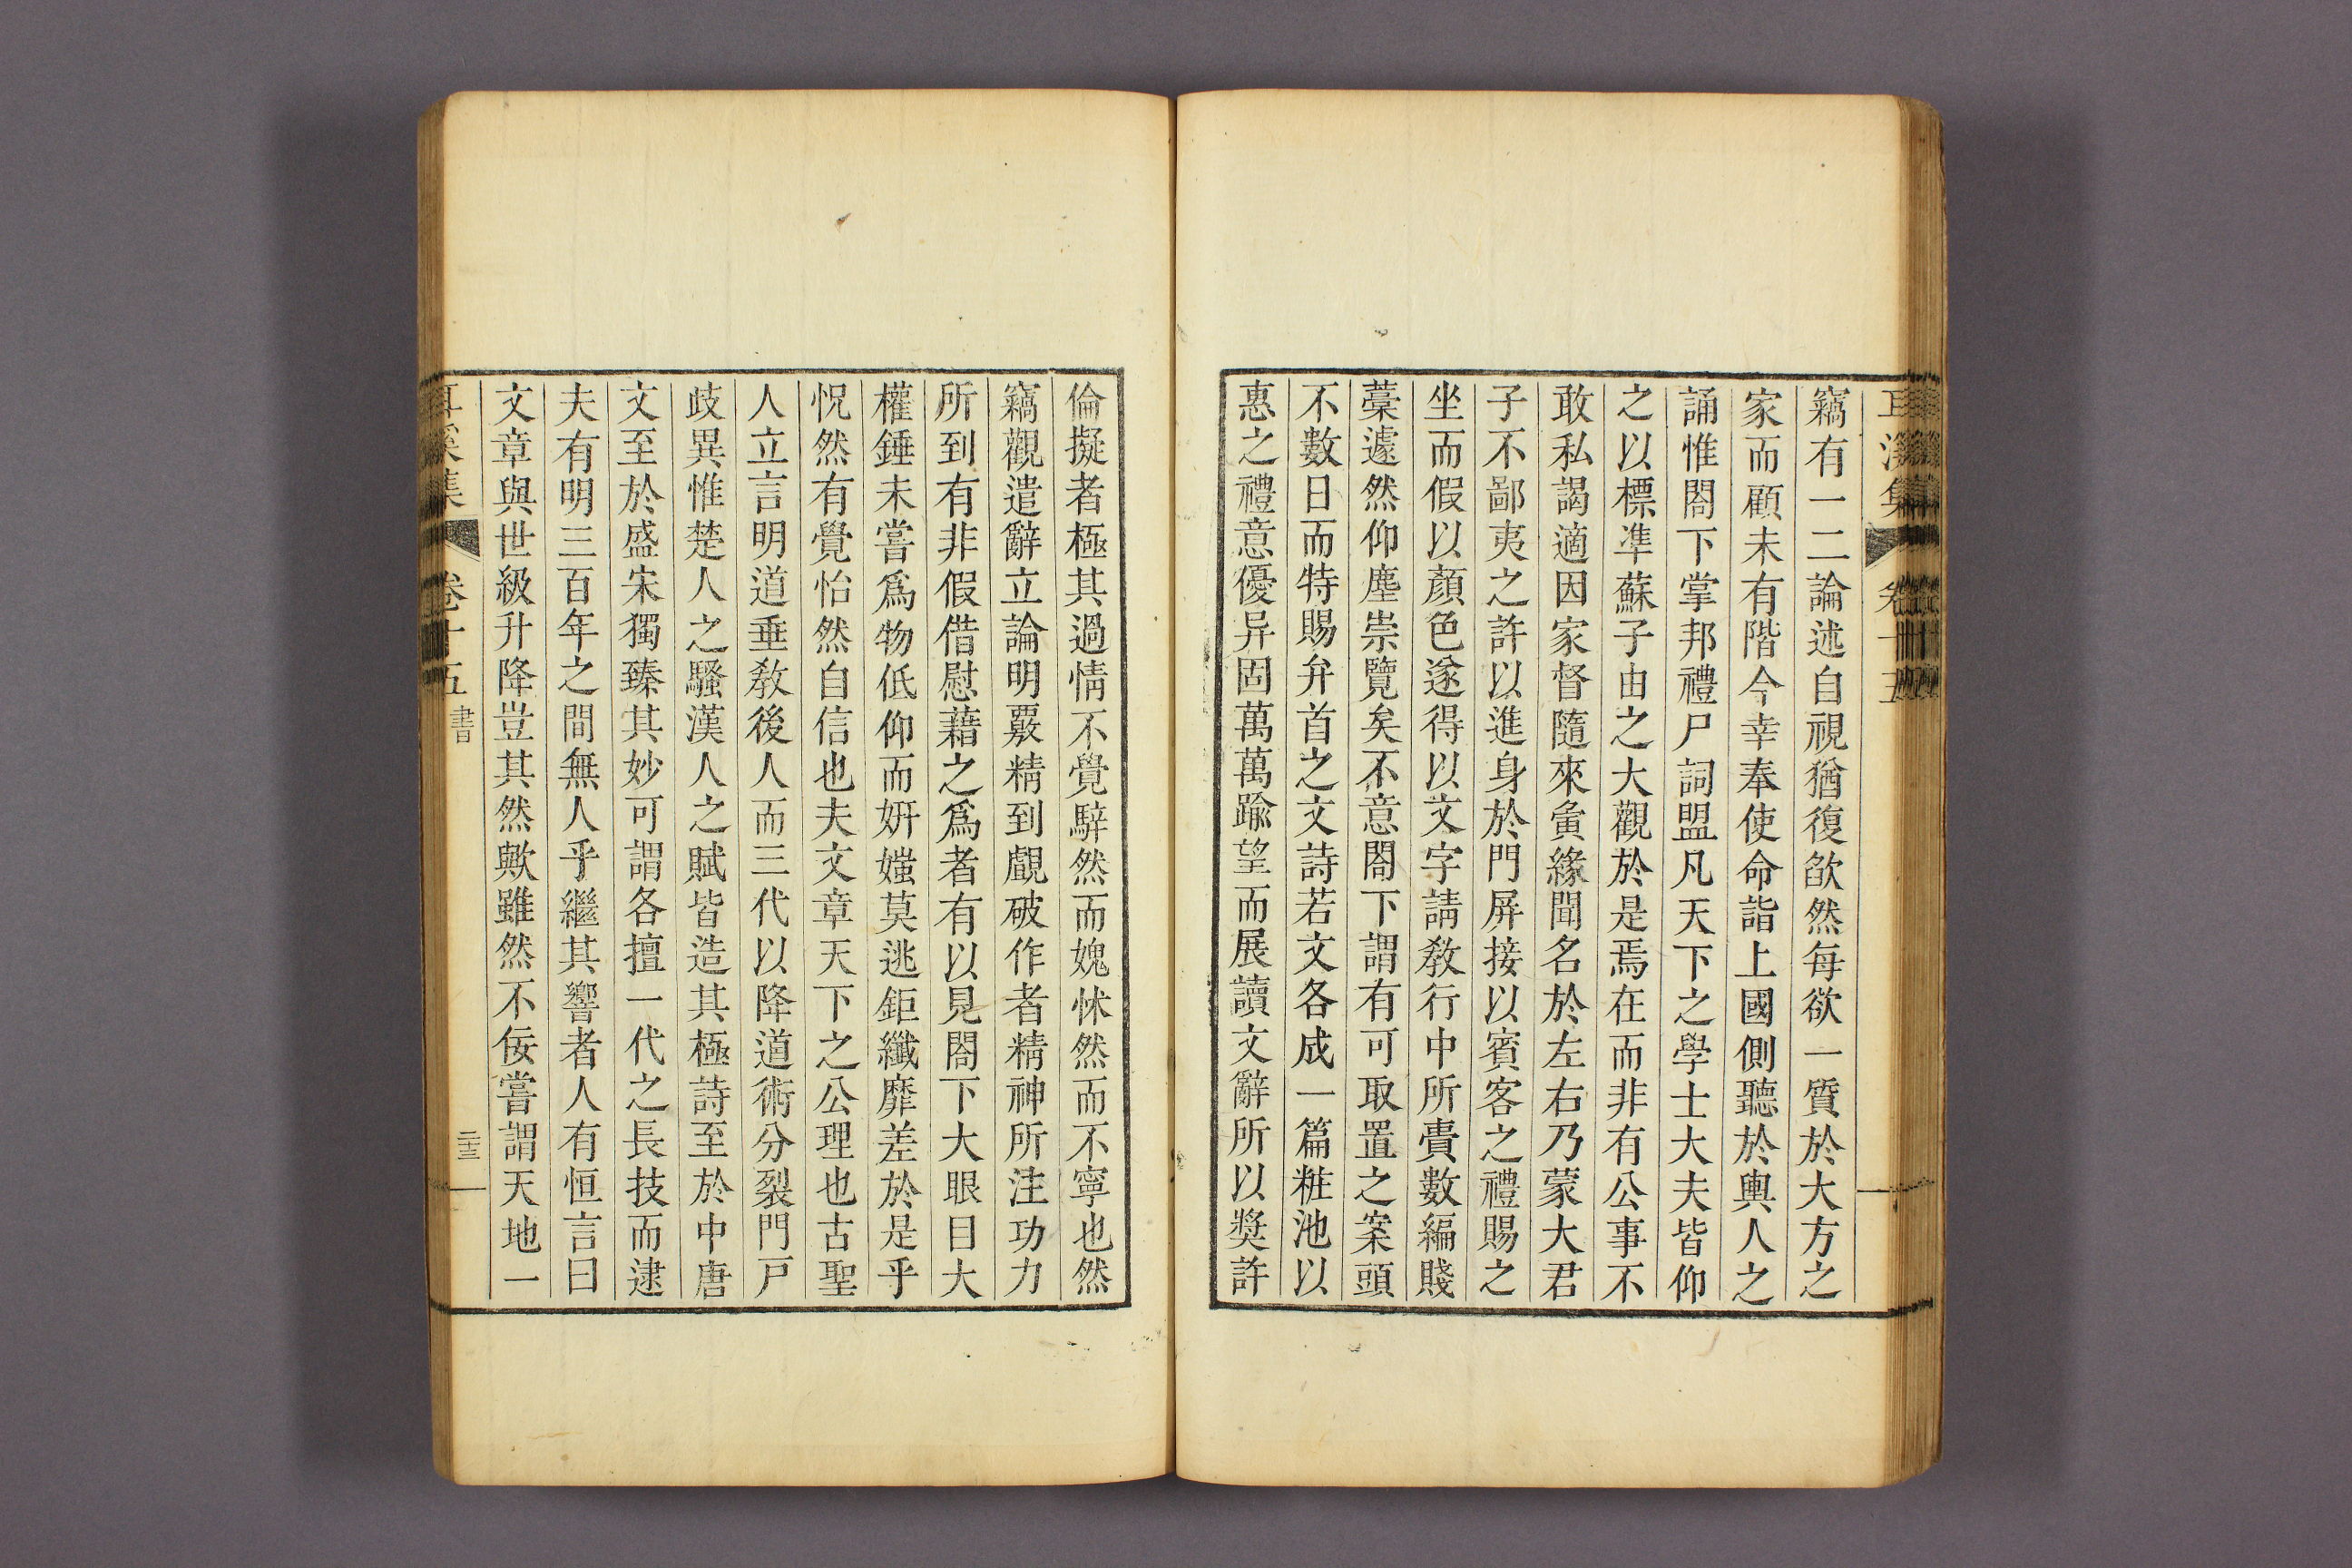 竊有一二論述自視猶復欿然每欲一質於大方之
家而顧未有階今幸奉使命詣上國側聽於輿人之
誦惟閤下掌邦禮尸詞盟凡天下之學士大夫皆仰
之以標凖蘇子由之大觀於是焉在而非有公事不
敢私謁適因家督隨來夤緣聞名於左右乃蒙大君
子不鄙夷之許以進身於門屏接以賓客之禮賜之
坐而假以顏色遂得以文字請敎行中所賷數編賤
藁遽然仰塵崇覽矣不意閤下謂有可取置之案頭
不數日而特賜弁首之文詩若文各成一篇粧池以
惠之禮意優异固萬萬踰望而展讀文辭所以奬許
倫擬者極其過情不覺騂然而媿怵然而不寧也然
竊觀遣辭立論明覈精到覰破作者精神所注功力
所到有非假借慰藉之爲者有以見閤下大眼目大
權錘未嘗爲物低仰而姸媸莫逃鉅纖靡差於是乎
怳然有覺怡然自信也夫文章天下之公理也古聖
人立言明道垂敎後人而三代以降道術分裂門戶
歧異惟楚人之騷漢人之賦皆造其極詩至於中唐
文至於盛宋獨臻其妙可謂各擅一代之長技而逮
夫有明三百年之間無人乎繼其響者人有恒言曰
文章與世級升降豈其然歟雖然不佞嘗謂天地一
耳溪集 卷十五 書 二十三